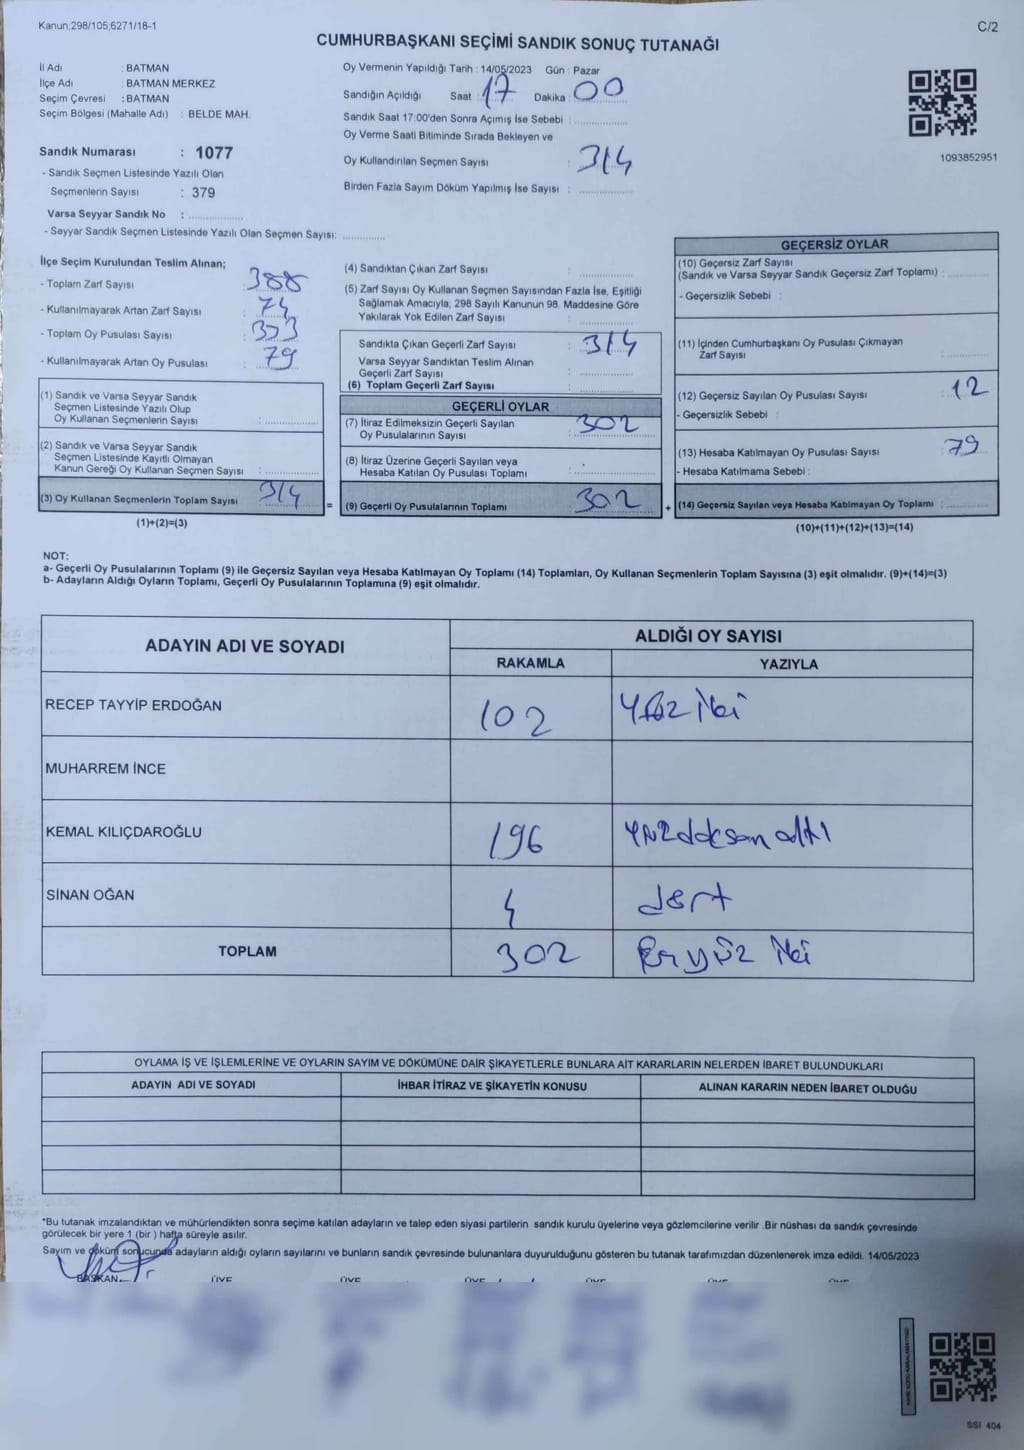 Kanun;298/105;6271/18-1
C/2
CUMHURBAŞKANI SEÇİMİ SANDIK SONUÇ TUTANAĞI
İl Adı : BATMAN
İlçe Adı : BATMAN MERKEZ
Seçim Çevresi : BATMAN
Seçim Bölgesi (Mahalle Adı) : BELDE MAH.
Sandık Numarası : 1077
- Sandık Seçmen Listesinde Yazılı Olan
Seçmenlerin Sayısı : 379
Varsa Seyyar Sandık No : ..................
- Seyyar Sandık Seçmen Listesinde Yazılı Olan Seçmen Sayısı: .............
Oy Vermenin Yapıldığı Tarih : 14/05/2023 Gün : Pazar
Sandığın Açıldığı Saat : 17 Dakika : 00
Sandık Saat 17:00'den Sonra Açımış İse Sebebi : ..................
Oy Verme Saati Bitiminde Sırada Bekleyen ve
Oy Kullandırılan Seçmen Sayısı : 314
Birden Fazla Sayım Döküm Yapılmış İse Sayısı : ..................
1093852951
İlçe Seçim Kurulundan Teslim Alınan;
- Toplam Zarf Sayısı : 388
- Kullanılmayarak Artan Zarf Sayısı : 74
- Toplam Oy Pusulası Sayısı :
- Kullanılmayarak Artan Oy Pusulası : 79
(1) Sandık ve Varsa Seyyar Sandık
Seçmen Listesinde Yazılı Olup
Oy Kullanan Seçmenlerin Sayısı : ..................
(2) Sandık ve Varsa Seyyar Sandık
Seçmen Listesinde Kayıtlı Olmayan
Kanun Gereği Oy Kullanan Seçmen Sayısı : ..................
(3) Oy Kullanan Seçmenlerin Toplam Sayısı 314
(1)+(2)=(3)
=
(4) Sandıktan Çıkan Zarf Sayısı : ..................
(5) Zarf Sayısı Oy Kullanan Seçmen Sayısından Fazla İse, Eşitliği
Sağlamak Amacıyla; 298 Sayılı Kanunun 98. Maddesine Göre
Yakılarak Yok Edilen Zarf Sayısı : ..................
Sandıkta Çıkan Geçerli Zarf Sayısı : 314
Varsa Seyyar Sandıktan Teslim Alınan
Geçerli Zarf Sayısı : ..................
(6) Toplam Geçerli Zarf Sayısı : ..................
GEÇERLİ OYLAR
(7) İtiraz Edilmeksizin Geçerli Sayılan
Oy Pusulalarının Sayısı : 302
(8) İtiraz Üzerine Geçerli Sayılan veya
Hesaba Katılan Oy Pusulası Toplamı : ..................
(9) Geçerli Oy Pusulalarının Toplamı 302
+
GEÇERSİZ OYLAR
(10) Geçersiz Zarf Sayısı
(Sandık ve Varsa Seyyar Sandık Geçersiz Zarf Toplamı) : .............
- Geçersizlik Sebebi :
(11) İçinden Cumhurbaşkanı Oy Pusulası Çıkmayan
Zarf Sayısı : .............
(12) Geçersiz Sayılan Oy Pusulası Sayısı : 12
- Geçersizlik Sebebi :
(13) Hesaba Katılmayan Oy Pusulası Sayısı : 79
- Hesaba Katılmama Sebebi :
(14) Geçersiz Sayılan veya Hesaba Katılmayan Oy Toplamı : .............
(10)+(11)+(12)+(13)=(14)
NOT:
a- Geçerli Oy Pusulalarının Toplamı (9) ile Geçersiz Sayılan veya Hesaba Katılmayan Oy Toplamı (14) Toplamları, Oy Kullanan Seçmenlerin Toplam Sayısına (3) eşit olmalıdır. (9)+(14)=(3)
b- Adayların Aldığı Oyların Toplamı, Geçerli Oy Pusulalarının Toplamına (9) eşit olmalıdır.
ADAYIN ADI VE SOYADI
ALDIĞI OY SAYISI
RAKAMLA YAZIYLA
RECEP TAYYİP ERDOĞAN 102 yüz iki
MUHARREM İNCE
KEMAL KILIÇDAROĞLU 196 yüzdoksan altı
SİNAN OĞAN 4 dört
TOPLAM 302 üçyüz iki
OYLAMA İŞ VE İŞLEMLERİNE VE OYLARIN SAYIM VE DÖKÜMÜNE DAİR ŞİKAYETLERLE BUNLARA AİT KARARLARIN NELERDEN İBARET BULUNDUKLARI
ADAYIN ADI VE SOYADI İHBAR İTİRAZ VE ŞİKAYETİN KONUSU ALINAN KARARIN NEDEN İBARET OLDUĞU
*Bu tutanak imzalandıktan ve mühürlendikten sonra seçime katılan adayların ve talep eden siyasi partilerin sandık kurulu üyelerine veya gözlemcilerine verilir .Bir nüshası da sandık çevresinde
görülecek bir yere 1 (bir ) hafta süreyle asılır.
Sayım ve döküm sonucunda adayların aldığı oyların sayılarını ve bunların sandık çevresinde bulunanlara duyurulduğunu gösteren bu tutanak tarafımızdan düzenlenerek imza edildi. 14/05/2023
BAŞKAN ÜYE ÜYE ÜYE ÜYE ÜYE ÜYE
SSI 404